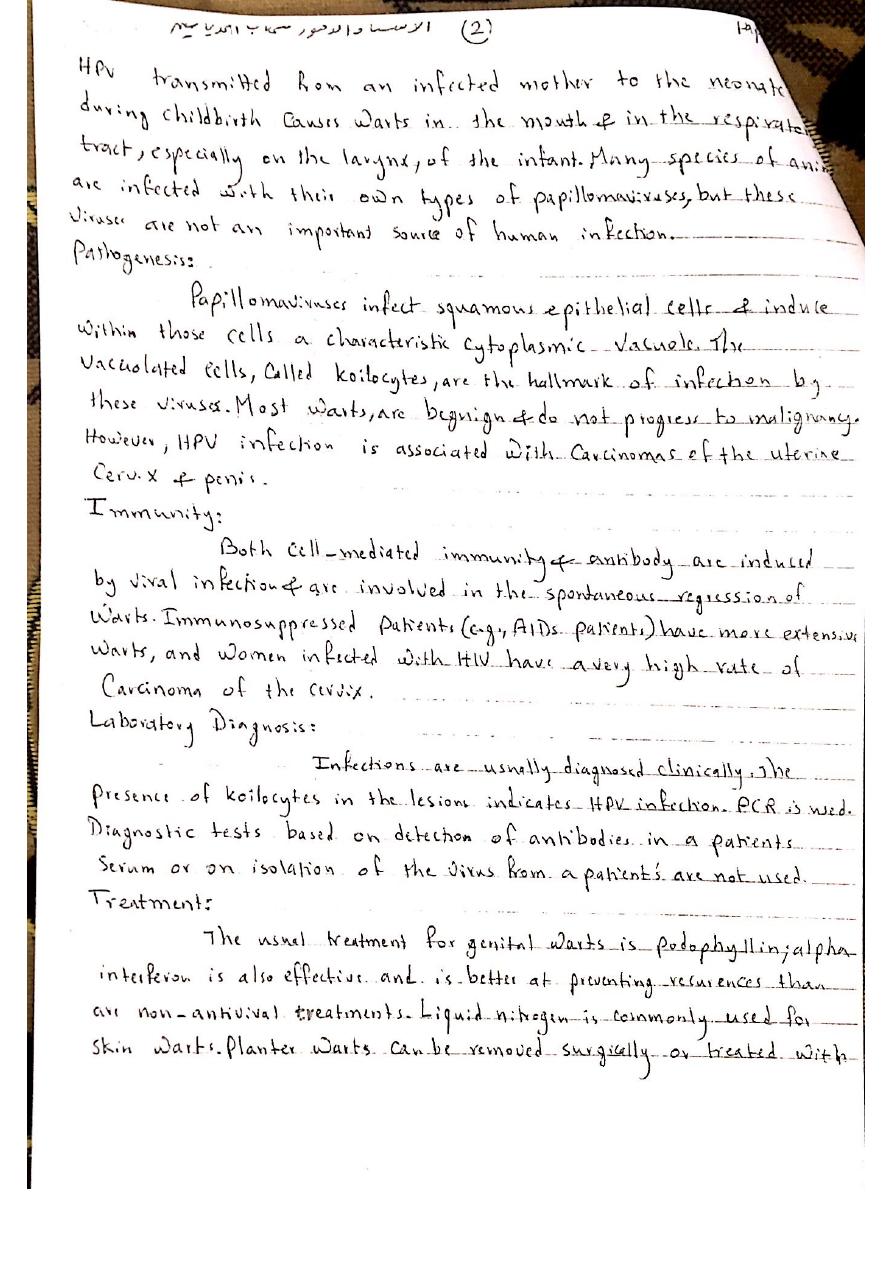 (2)
HPV transmitted from an infected mother to the neonate
during childbirth causes warts in the mouth & in the respirat
tract, especially on the larynx, of the infant. Many species of ani
are infected with their own types of papillomaviruses, but these
viruses are not an important source of human infection.
Pathogenesis:
Papillomaviruses infect squamous epithelial cells & induce
within those cells a characteristic cytoplasmic vacuole. The
vacuolated cells, called koilocytes, are the hallmark of infection by
these viruses. Most warts, are begnign & do not progress to malignancy.
However, HPV infection is associated with carcinomas of the uterine
cervix & penis.
Immunity:
Both cell-mediated immunity & antibody are induced
by viral infection & are involved in the spontaneous regression of
warts. Immunosuppressed patients (e.g., AIDs patients) have more extensive
warts, and women infected with HIV have a very high rate of
carcinoma of the cervix.
Laboratory Diagnosis:
Infections are usually diagnosed clinically. The
presence of koilocytes in the lesions indicates HPV infection. PCR is used.
Diagnostic tests based on detection of antibodies in a patients
serum or on isolation of the virus from a patient's are not used.
Treatment:
The usual treatment for genital warts is podophyllin; alpha
interferon is also effective and is better at preventing recurences than
are non-antiviral treatments. Liquid nitrogen is commonly used for
skin warts. Planter warts can be removed surgically or treated with